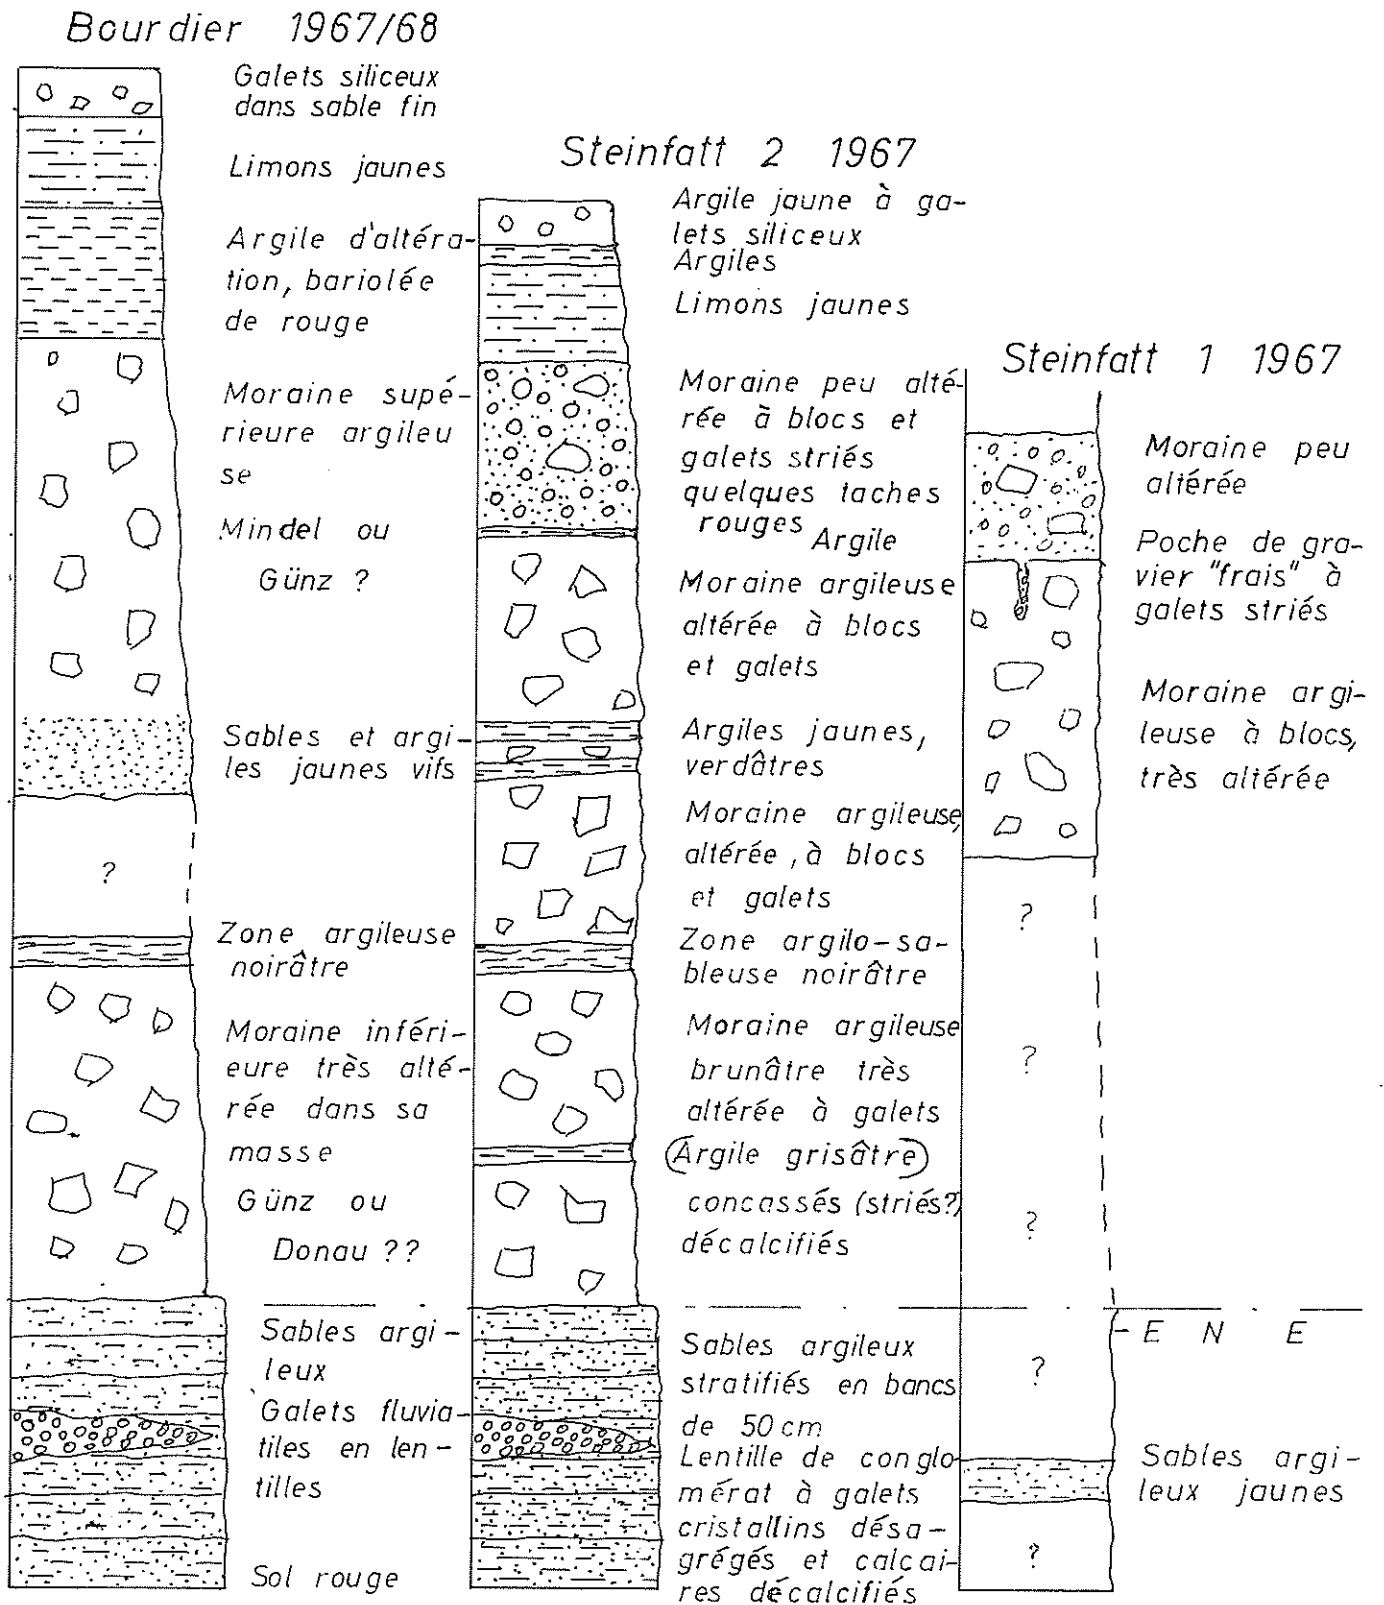 Bourdier 1967/68
Galets siliceux
dans sable fin
Limons jaunes
Argile d'altéra-
tion, bariolée
de rouge
Moraine supé-
rieure argileu
se
Mindel ou
Günz ?
Sables et argi-
les jaunes vifs
?
Zone argileuse
noirâtre
Moraine inféri-
eure très alté-
rée dans sa
masse
Günz ou
Donau ??
Sables argi-
leux
Galets fluvia-
tiles en len-
tilles
Sol rouge
Steinfatt 2 1967
Argile jaune à ga-
lets siliceux
Argiles
Limons jaunes
Moraine peu alté-
rée à blocs et
galets striés
quelques taches
rouges
Argile
Moraine argileuse
altérée à blocs
et galets
Argiles jaunes,
verdâtres
Moraine argileuse,
altérée, à blocs
et galets
Zone argilo-sa-
bleuse noirâtre
Moraine argileuse
brunâtre très
altérée à galets
(Argile grisâtre)
concassés (striés?)
décalcifiés
Sables argileux
stratifiés en bancs
de 50 cm
Lentille de conglo-
mérat à galets
cristallins désa-
grégés et calcai-
res décalcifiés
Steinfatt 1 1967
Moraine peu
altérée
Poche de gra-
vier "frais" à
galets striés
Moraine argi-
leuse à blocs,
très altérée
?
?
?
- E N E
?
Sables argi-
leux jaunes
?